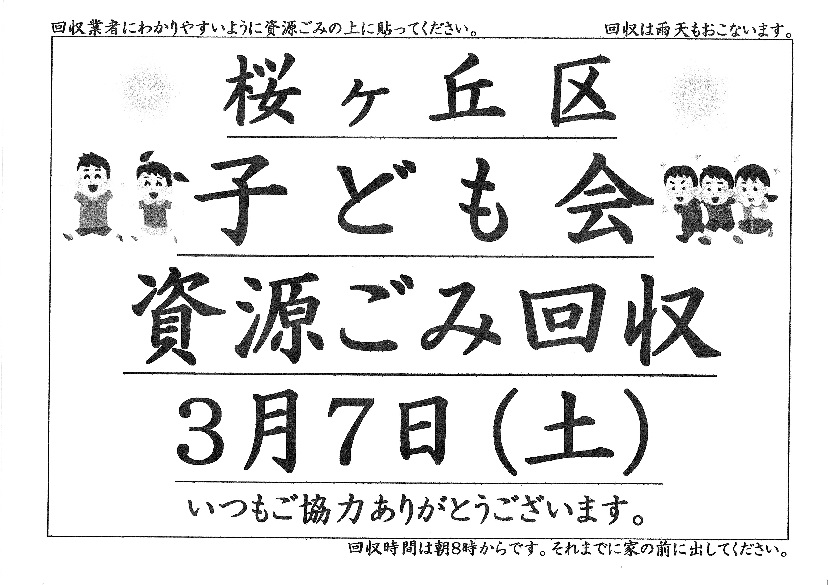 回収業者にわかりやすいように資源ごみの上に貼ってください。 回収は雨天もおこないます。
桜ヶ丘区
子ども会
資源ごみ回収
3月7日(土)
いつもご協力ありがとうございます。
回収時間は朝8時からです。それまでに家の前に出してください。